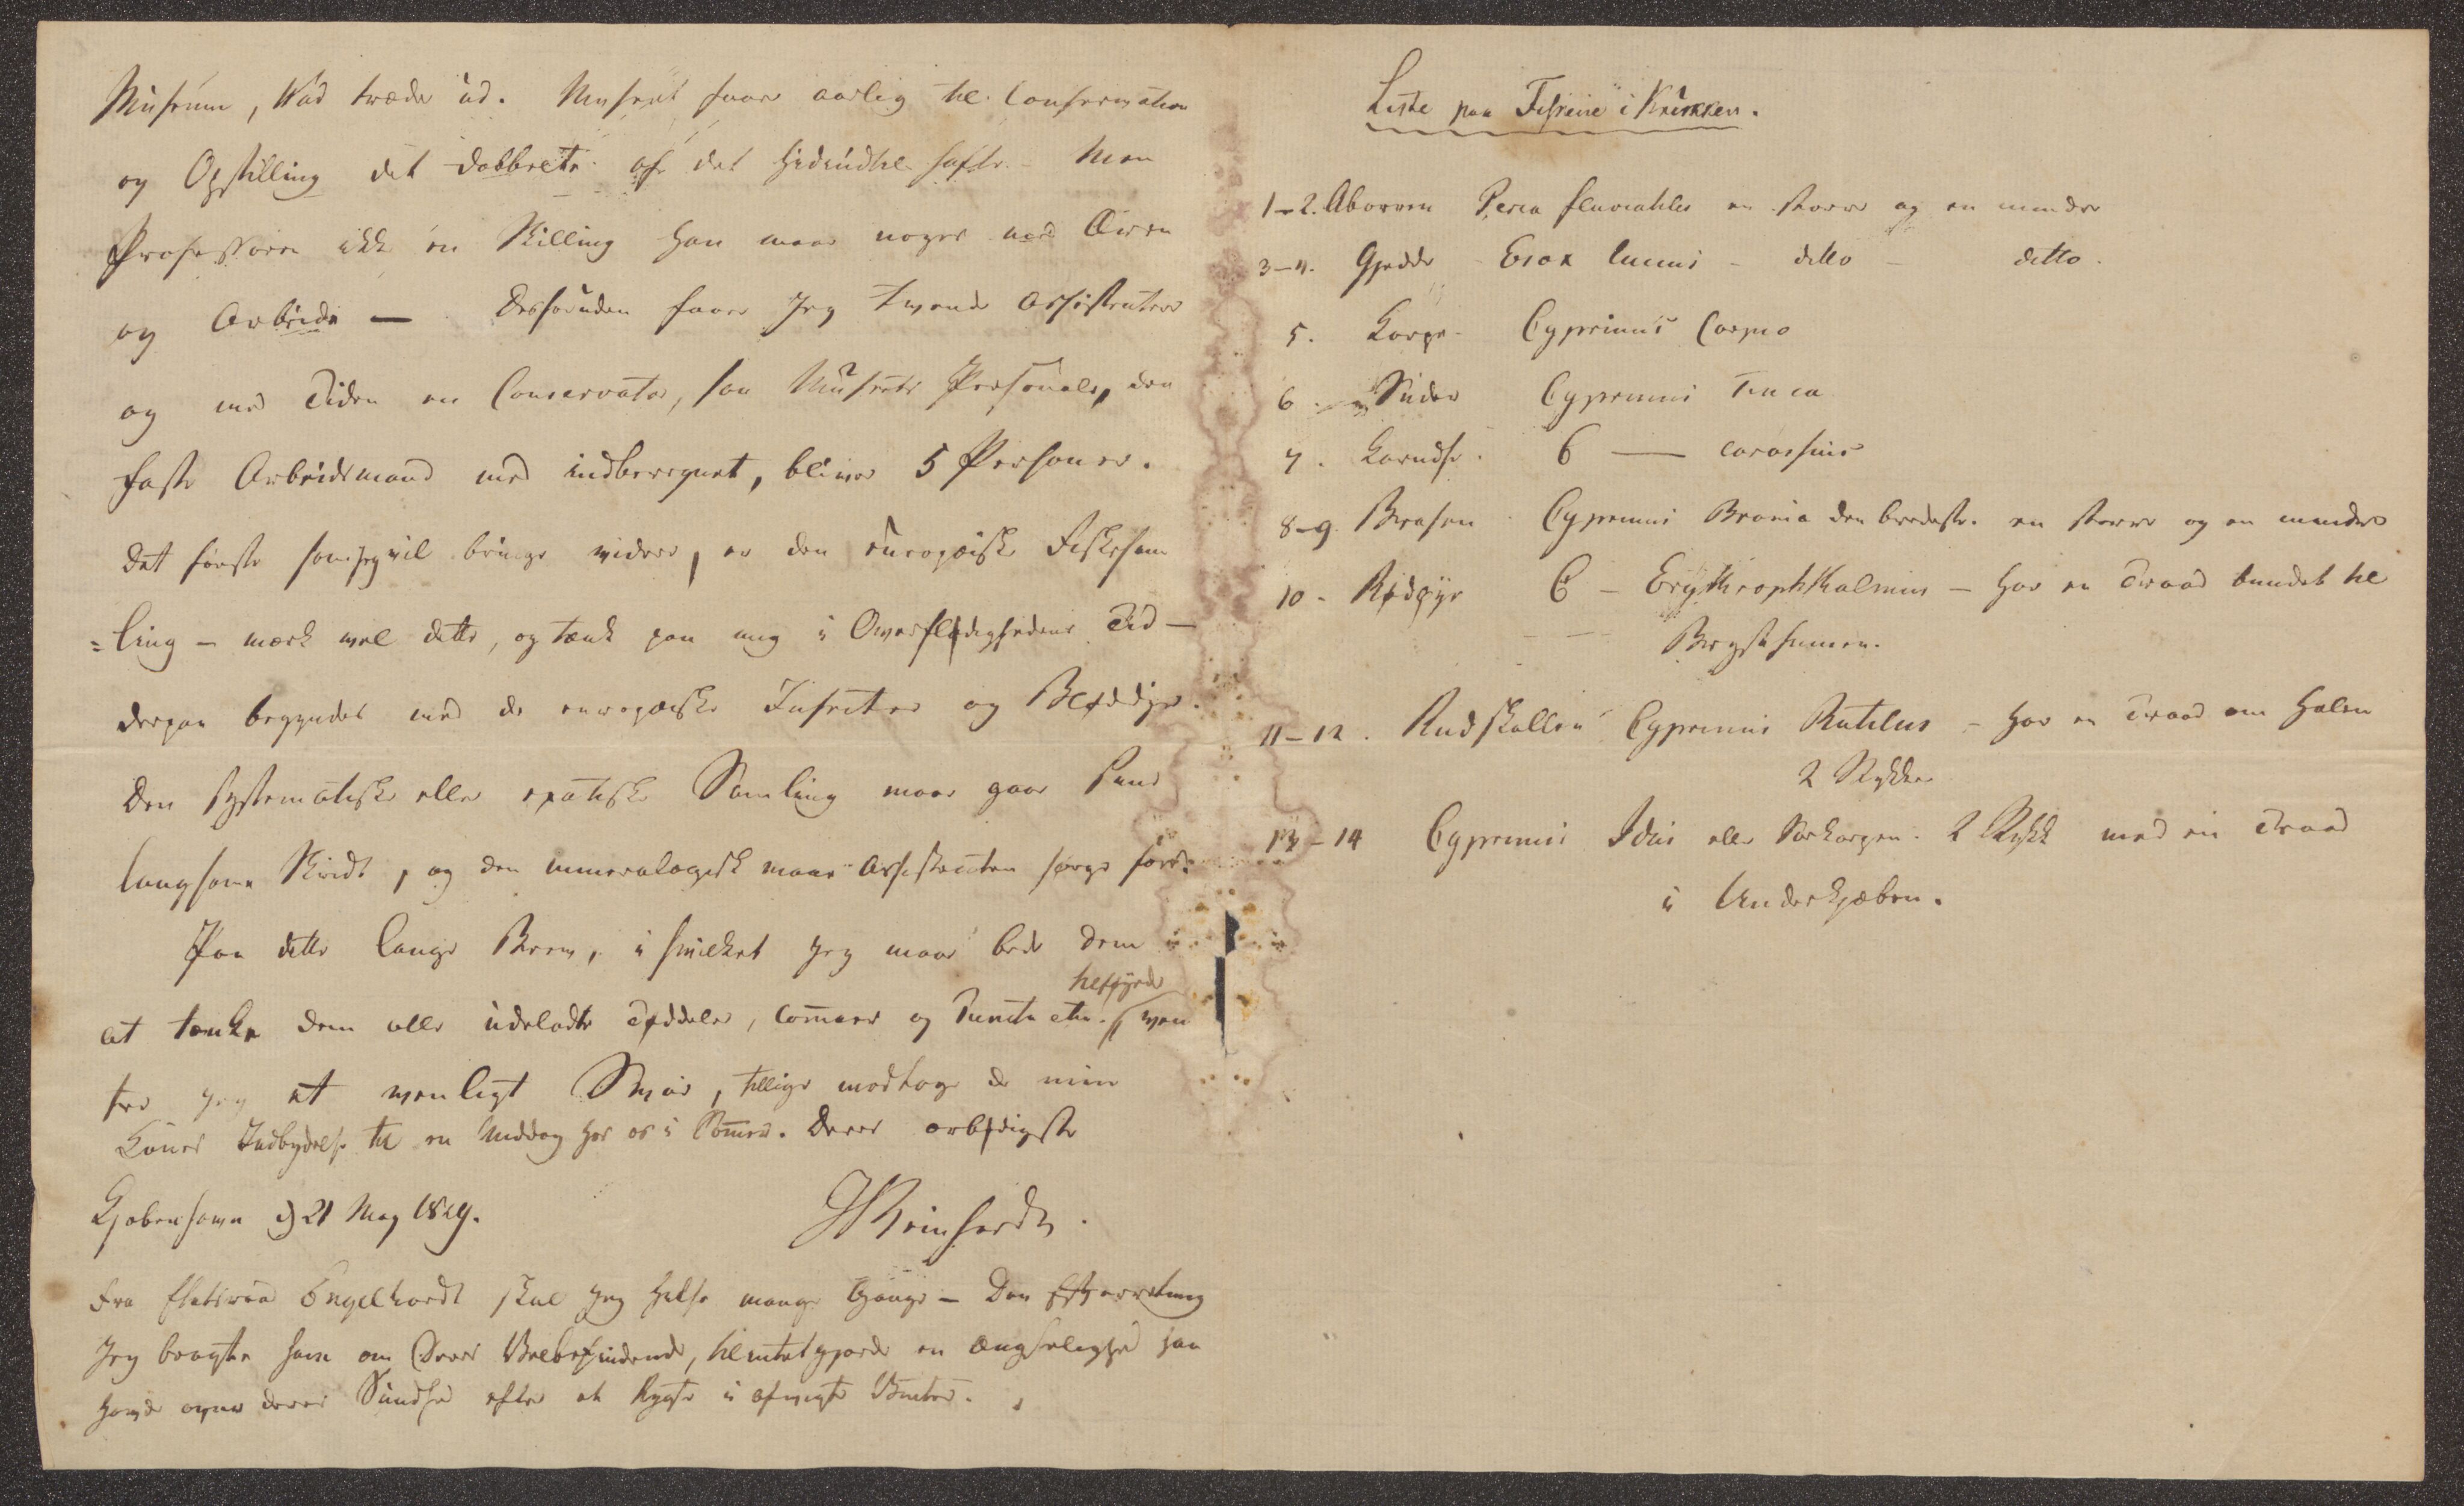 Museum, Kũd træder ud. Museet faaer aarlig til Conservation
og Opstilling det dobbelte af det hidindtil hafte – Men
Professoren ikke en Skilling han maae nøyes med Æren
og Arbeide — Desforuden faaer Jeg tvende Assistenter
og med Tiden en Conservator, saa Museets Personale, den
faste Arbeidsmand med indberegnet, bliver 5 Personer.
Det første som jeg vil bringe videre, er den europæiske Fiskesam
=ling – mærk vel dette, og tænk paa mig i Overflødighedens Tid –
derpaa begyndes med de europæiske Insecter og Bløddyr.
Den systematiske eller exotiske Samling maae gaae sin
langsomme Skridt, og den mineralogiske maae Assistenten sørge for.
Paa dette lange Brev, i hvilket Jeg maae bede Dem
at tænke Dem alle udeladte Tøddeler, Commaer og Puncta etc. tilføyede ven
ter jeg et venligt Svar, tillige modtage De min
Kones Indbydelse til en Middag hos os i Sommer. Deres ærbødigste
Kjøbenhavn d 21 May 1829.
JReinhardt.
Fra Etatsraad Engelhardt skal Jeg hilse mange Gange – Den Efterretning
Jeg bragte ham om Deres Velbefindende, tilintetgjorde en Ængstelighed han
havde oven Deres Sundhed efter et Rygte i afvigte Vinter.
Liste paa Fiskene i Krukken.
1–2. Aborren Perca fluviatilis en større og en mindre
3–4. Gjedde – Esox lucius – ditto – ditto.
5. Karpe – Cyprinus Carpio
6. Suder Cyprinus Tinca
7. Karudse. C — carassius
8–9. Brasen Cyprinus Brama den bredeste. en større og en mindre
10 – Rødøye C – Erythrophthalmus – har en Traad bundet til
Brystfinnen.
11–12. Rudskallen Cyprinus Rutilus – har en Traad om Halen
2 Stykker
13–14 Cyprinus Idus eller 2 Stykk med en Traad
i Underkjæben.